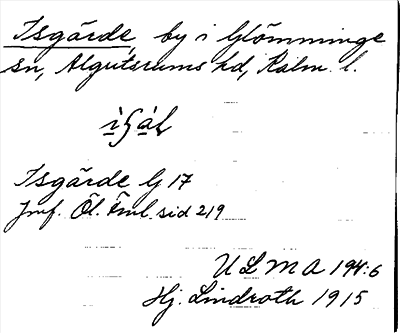 Isgärde, by i Glömminge
sn, Algutsrums hd, Kalm. l.
Isgärde G 17
Jmf. Öl. Fml. sid 219
ULMA 194:6
Hj. Lindroth 1915